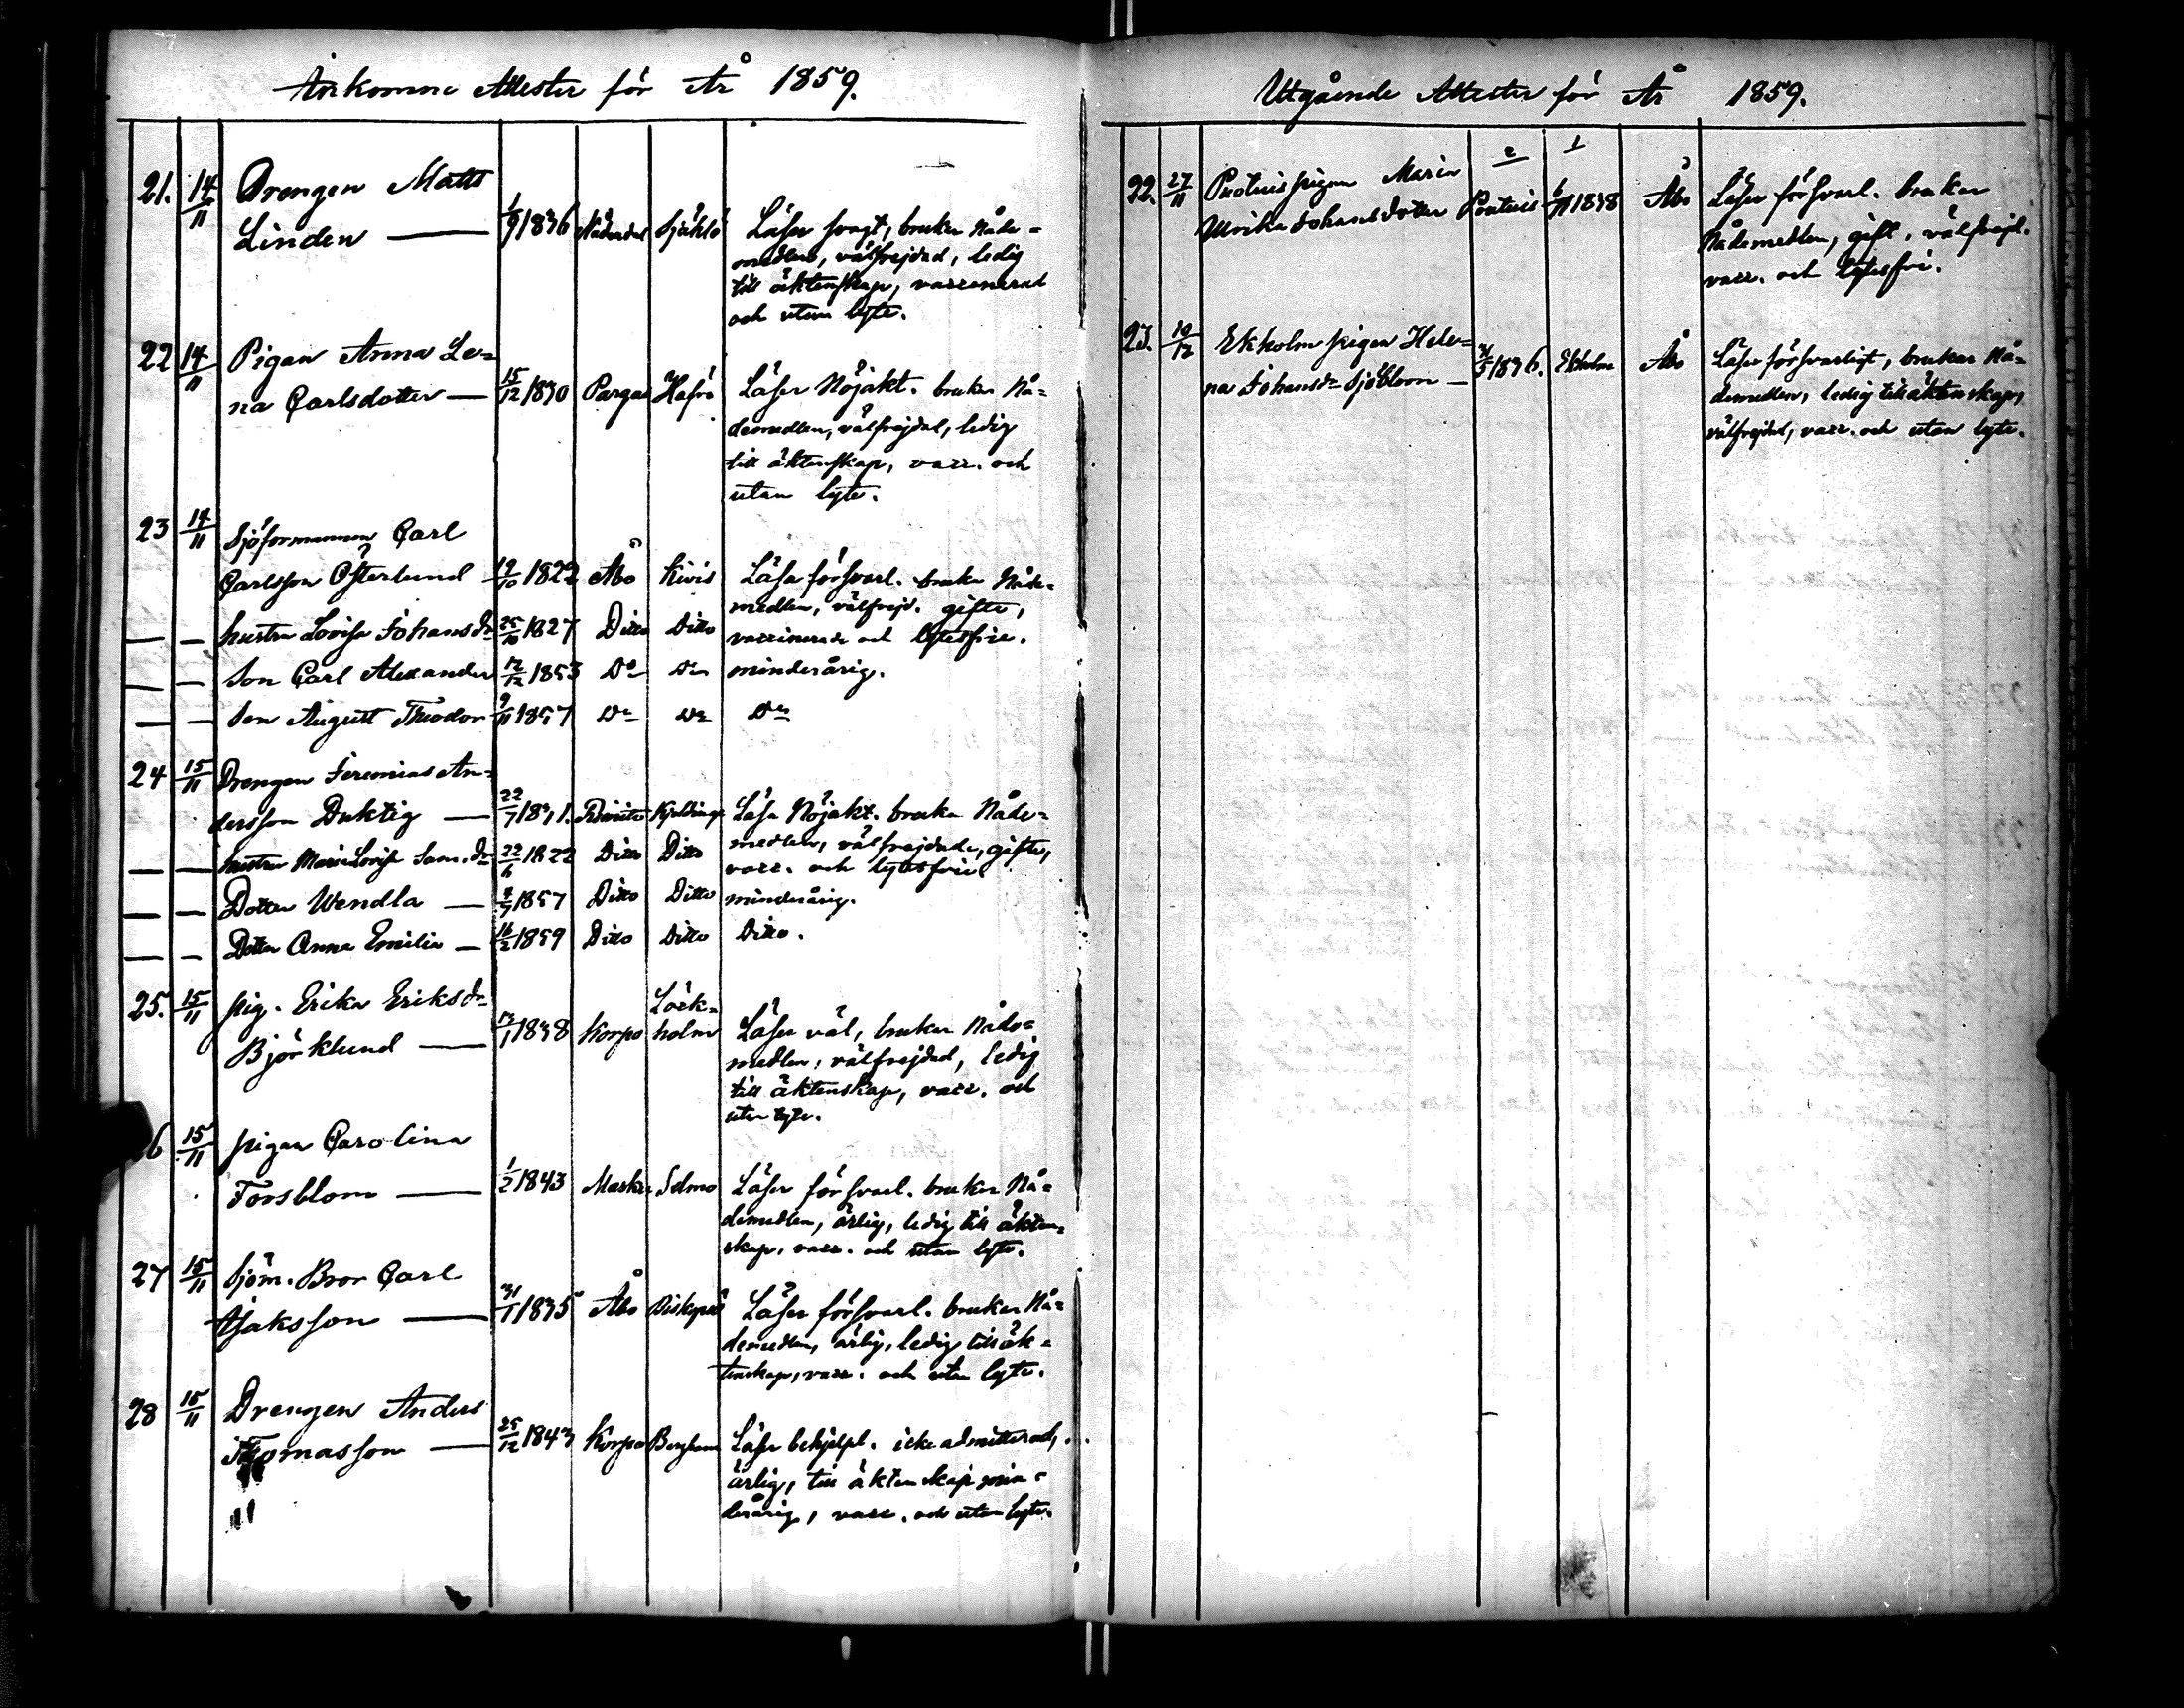 Ankomne Attester för År 1859.
21. 14/11 Drengen Matts
Linden — 1/9 1836 Nådendal Sjählö Läser svagt, bruker Nåde-
medlen, välfrejdad, ledig
till äktenskap, vaccinerad
och utan lyte.
22 14/11 Pigan Anna Le-
na Carlsdotter — 15/12 1830 Pargas Hafrö Läser Nöjakt. bruker Nå-
demedlen, välfrejdad, ledig
till äktenskap, vacc. och
utan lyte.
23 14/11 Sjöformannen Carl
Carlsson Österlund 19/10 1822 Åbo Kivis Läser försvarl. bruker Nåde-
medlen, välfrejd. gifte,
— — hustru Lovisa Johansdr 25/10 1827 Ditto Ditto vaccinerade och lytesfrie.
— — Son Carl Alexander 17/12 1853 Do Do minderårig.
— — Son August Theodor 9/11 1857 Do Do Do
24 15/11 Drengen Jeremias An-
dersson Duktig — 22/7 1831. Rimito Läser Nöjakt. bruka Nåde-
medlen, välfrejdade, gifte,
— — hustru Maria Lovisa Sam.dr 22/6 1822 Ditto Ditto vacc. och lytesfrie
— — Dotter Wendla — 1857 Ditto Ditto minderårig.
— — Dotter Anna Emilia — 16/2 1859 Ditto Ditto Ditto.
25. 15/11 pig. Erika Eriksdr Löck-
Björklund — 13/1 1838 Korpo holm Läser väl, bruker Nåde-
medlen, välfrejdad, ledig
till äktenskap, vacc. och
utan lyte.
6 15/11 pigan Carolina
Forsblom — 1/2 1843 Masku Selmo Läser försvarl. bruker Nå-
demedlen, ärlig, ledig till äkten-
skap, vacc. och utan lyte.
27 15/11 Sjöm. Bror Carl
Isaksson — 31/1 1835 Åbo Biskopsö Läser försvarl. bruker Nå-
demedlen, ärlig, ledig till äk-
tenskap, vacc. och utan lyte.
28 15/11 Drengen Anders
Thomasson — 25/12 1843 Korpo Bergham Läser behjelpl. icke admitterad,
ärlig, till äktenskap min-
derårig, vacc. och utan lyte.
Utgående Attester för År 1859.
22. 27/11 Prostvis pigan Maria
Ulrika Johansdotter 6/11 1838 Åbo Läser försvarl. bruker
Nådemedlen, gift, välfrejd.
vacc. och lytesfri.
23. 10/12 Ekholm pigan Hele-
na Johansdr Sjöblom — 31/5 1836. Ekholm Åbo Läser försvarligt, bruker Nå-
demedlen, ledig till äktenskap,
välfrejdad, vacc. och utan lyte.